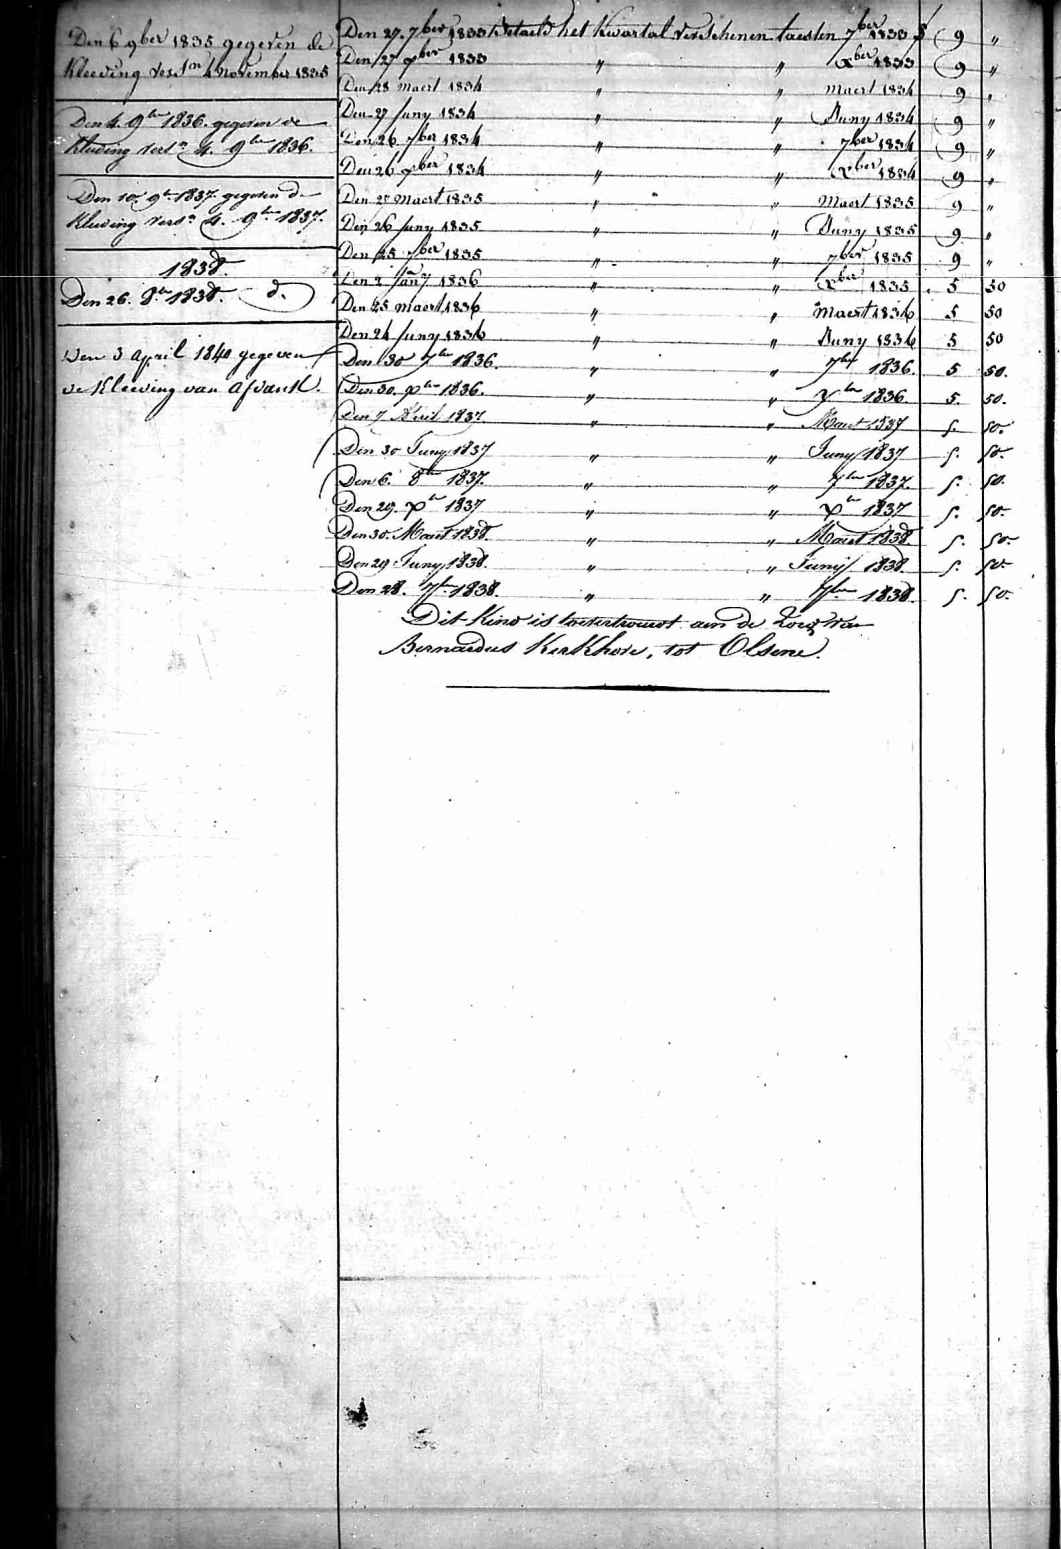 Den 6 9ber 1835 gegeven de
Kleeding versn 4 november 1835
Den 4. 9ber 1836. gegeven de
Kleeding versn 4. 9ber 1836.
Den 10. 9r 1837. gegeven de
Kleeding versn 4. 9ber 1837.
1838.
Den 26. 8ber 1838. d.
Den 3 April 1840 gegeven
de Kleeding van afdank.
Den 27. 7ber 1833 Betaeld het Kwartal verschenen laesten 7ber 1833 f 9 "
Den 27 9ber 1833 " " Xber 1833 9 "
Den 28 maert 1834 " " maert 1834 9 "
Den 27 Juny 1834 " " Juny 1834 9 "
Den 26 7ber 1834 " " 7ber 1834 9 "
Den 26 9ber 1834 " " Xber 1834 9 "
Den 27 maert 1835 " " Maert 1835 9 "
Den 26 Juny 1835 " " Juny 1835 9 "
Den 25 7ber 1835 " " 7ber 1835 9 "
Den 2 Jany 1836 " " Xber 1835 5 50
Den 25 maert 1836 " " maert 1836 5 50
Den 24 Juny 1836 " " Juny 1836 5 50
Den 30 7ber 1836. " " 7ber 1836. 5 50.
Den 30. Xber 1836. " " Xber 1836 5. 50.
Den 7 April 1837 " " Maert 1837 5. 50.
Den 30 Juny 1837 " " Juny 1837 5. 50
Den 6. 8ber 1837. " " 7ber 1837. 5. 50.
Den 29. Xber 1837 " " Xber 1837 5. 50.
Den 30. Maert 1838. " " Maert 1838 5. 50.
Den 29 Juny 1838. " " Junij 1838. 5. 50
Den 28. 7ber 1838. " " 7ber 1838. 5. 50.
Dit Kind is toevertrouwt aen de zorg van
Bernardus Kerkhove, tot Olsene.